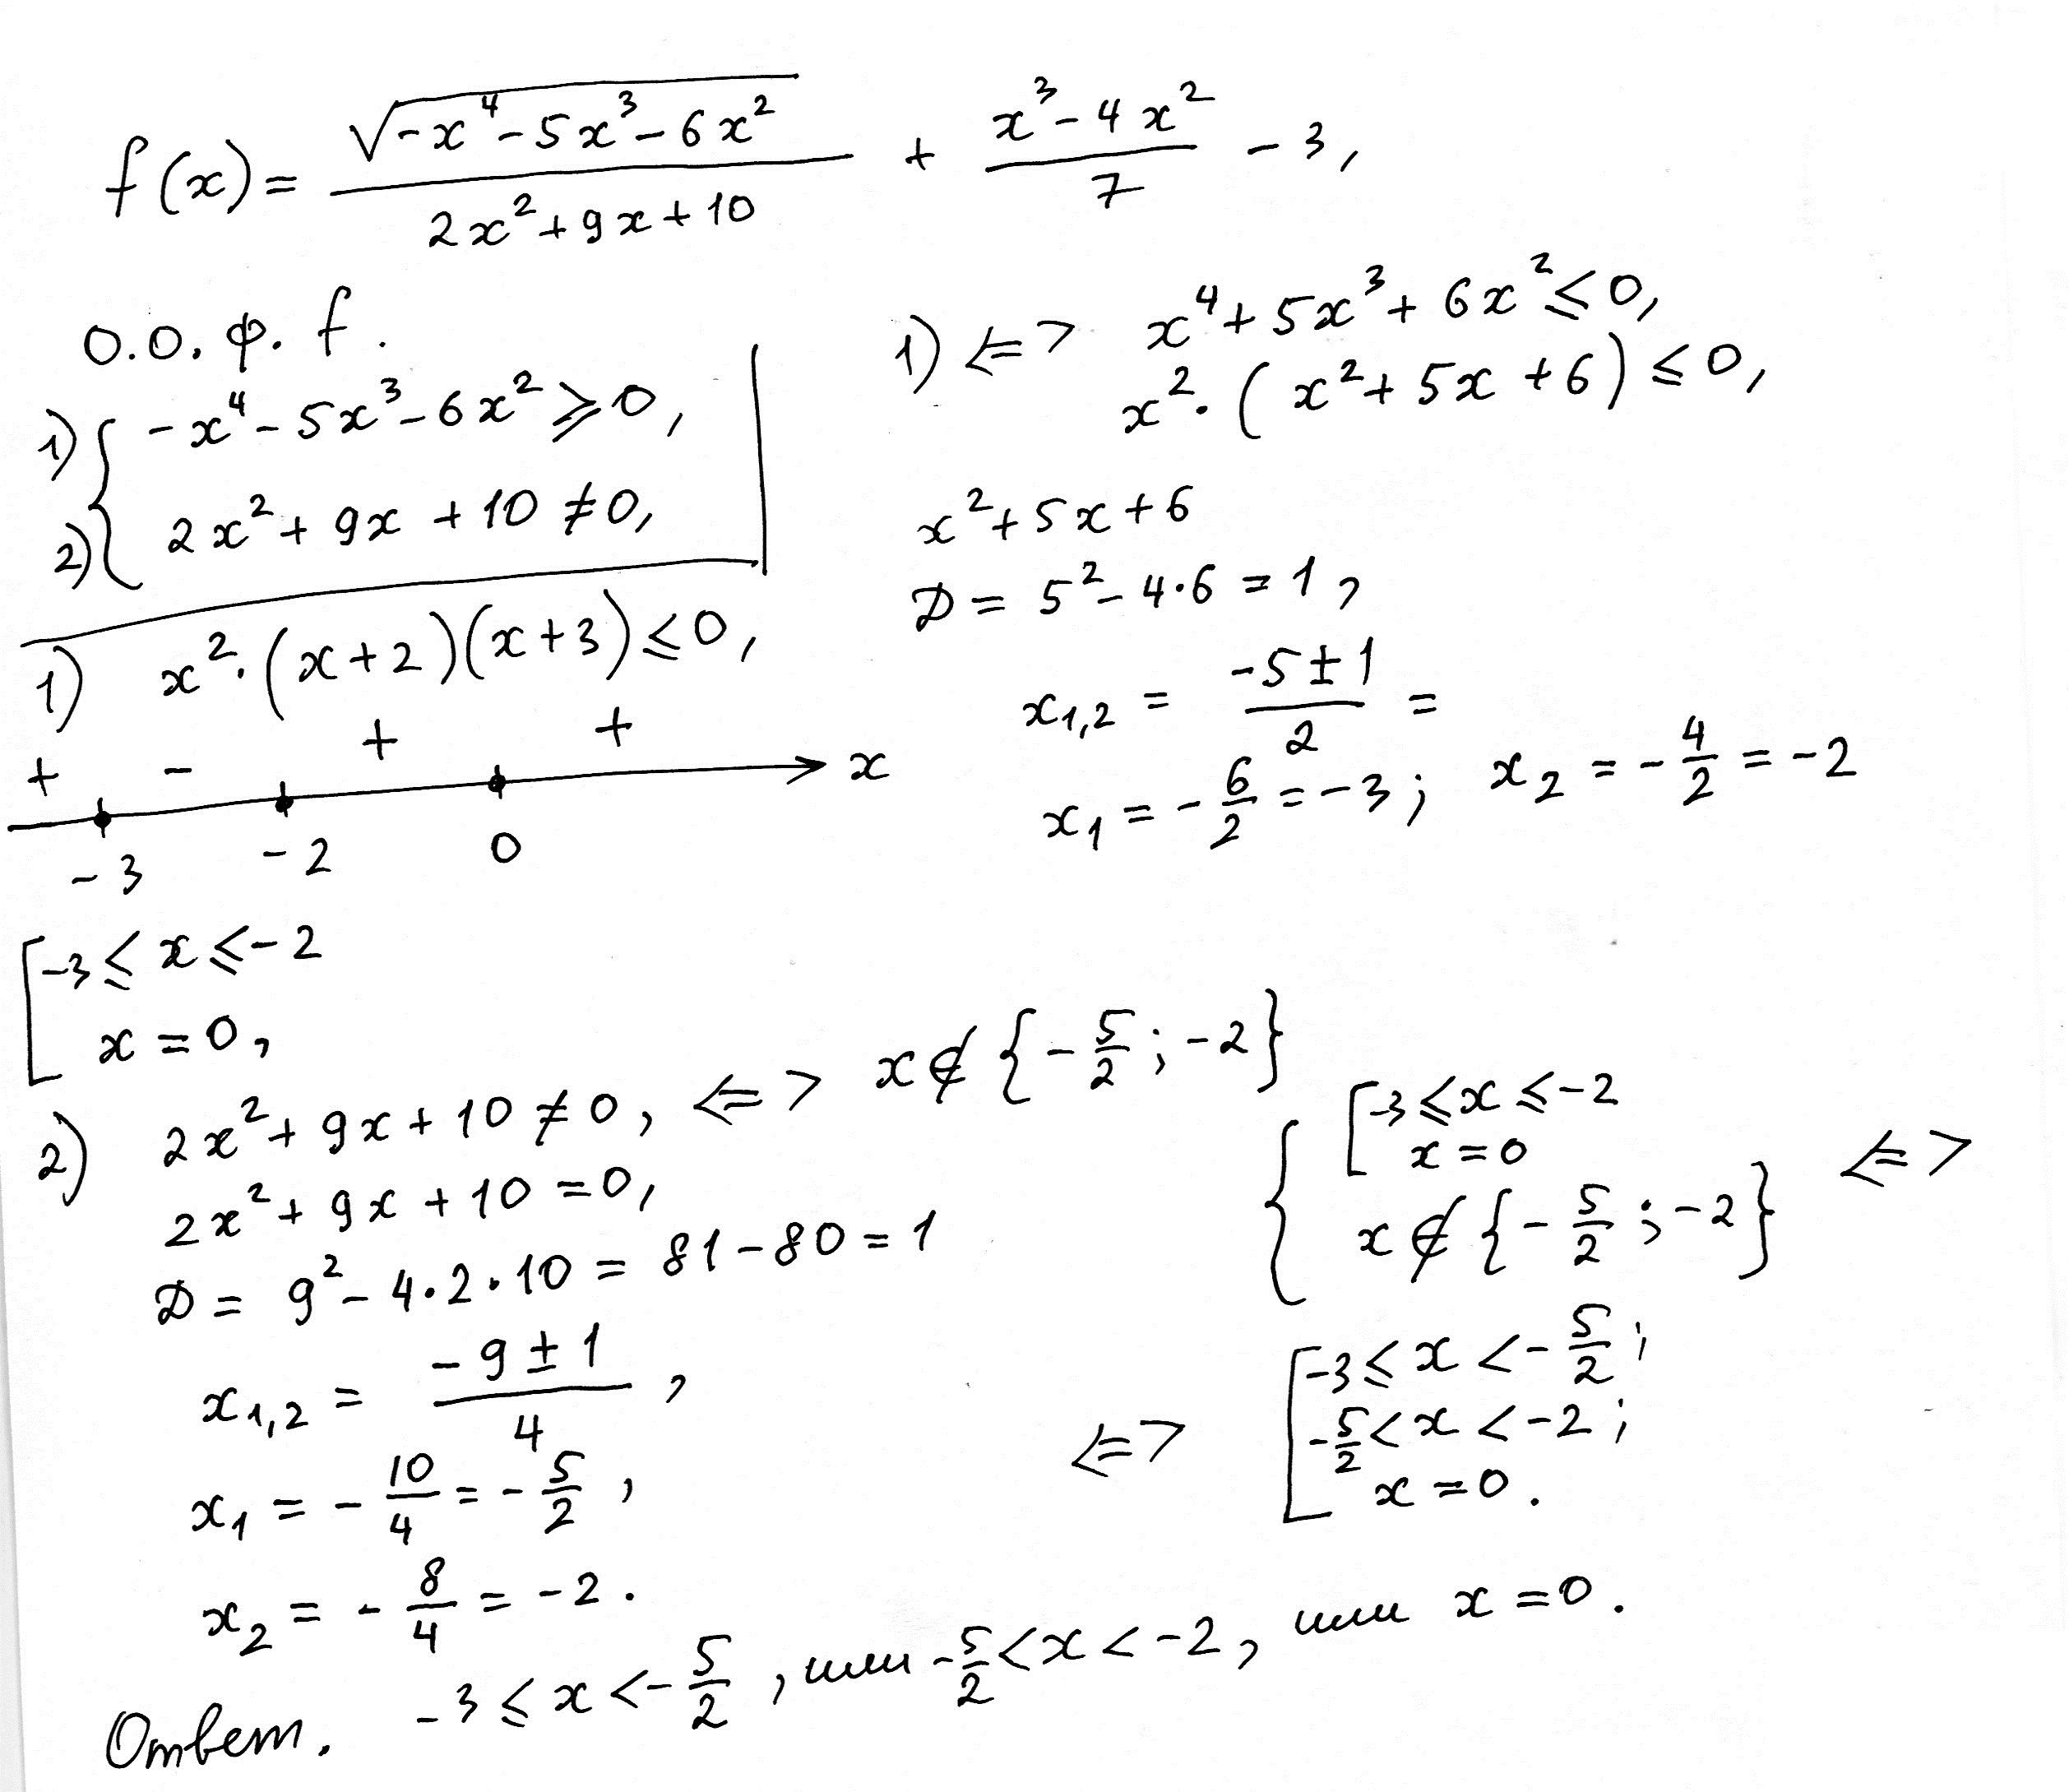 f(x) = √(-x⁴-5x³-6x²) / (2x²+9x+10) + (x³-4x²)/7 - 3,
О.О.ф. f.
1) { -x⁴-5x³-6x² ⩾ 0,
2) { 2x²+9x+10 ≠ 0,
1) <=> x⁴+5x³+6x² ⩽ 0,
x²·(x²+5x+6) ⩽ 0,
x²+5x+6
D = 5²-4·6 = 1,
x₁,₂ = (-5±1)/2 =
x₁ = -6/2 = -3; x₂ = -4/2 = -2
1) x²·(x+2)(x+3) ⩽ 0,
+ - + +
x
-3 -2 0
[ -3 ⩽ x ⩽ -2
x = 0,
2) 2x²+9x+10 ≠ 0, <=> x ∉ {-5/2; -2}
2x²+9x+10 = 0,
D = 9²-4·2·10 = 81-80 = 1
x₁,₂ = (-9±1)/4,
x₁ = -10/4 = -5/2,
x₂ = -8/4 = -2.
{ [ -3 ⩽ x ⩽ -2
x = 0 <=>
x ∉ {-5/2; -2}
<=> [ -3 ⩽ x < -5/2;
-5/2 < x < -2;
x = 0.
Ответ. -3 ⩽ x < -5/2, или -5/2 < x < -2, или x = 0.